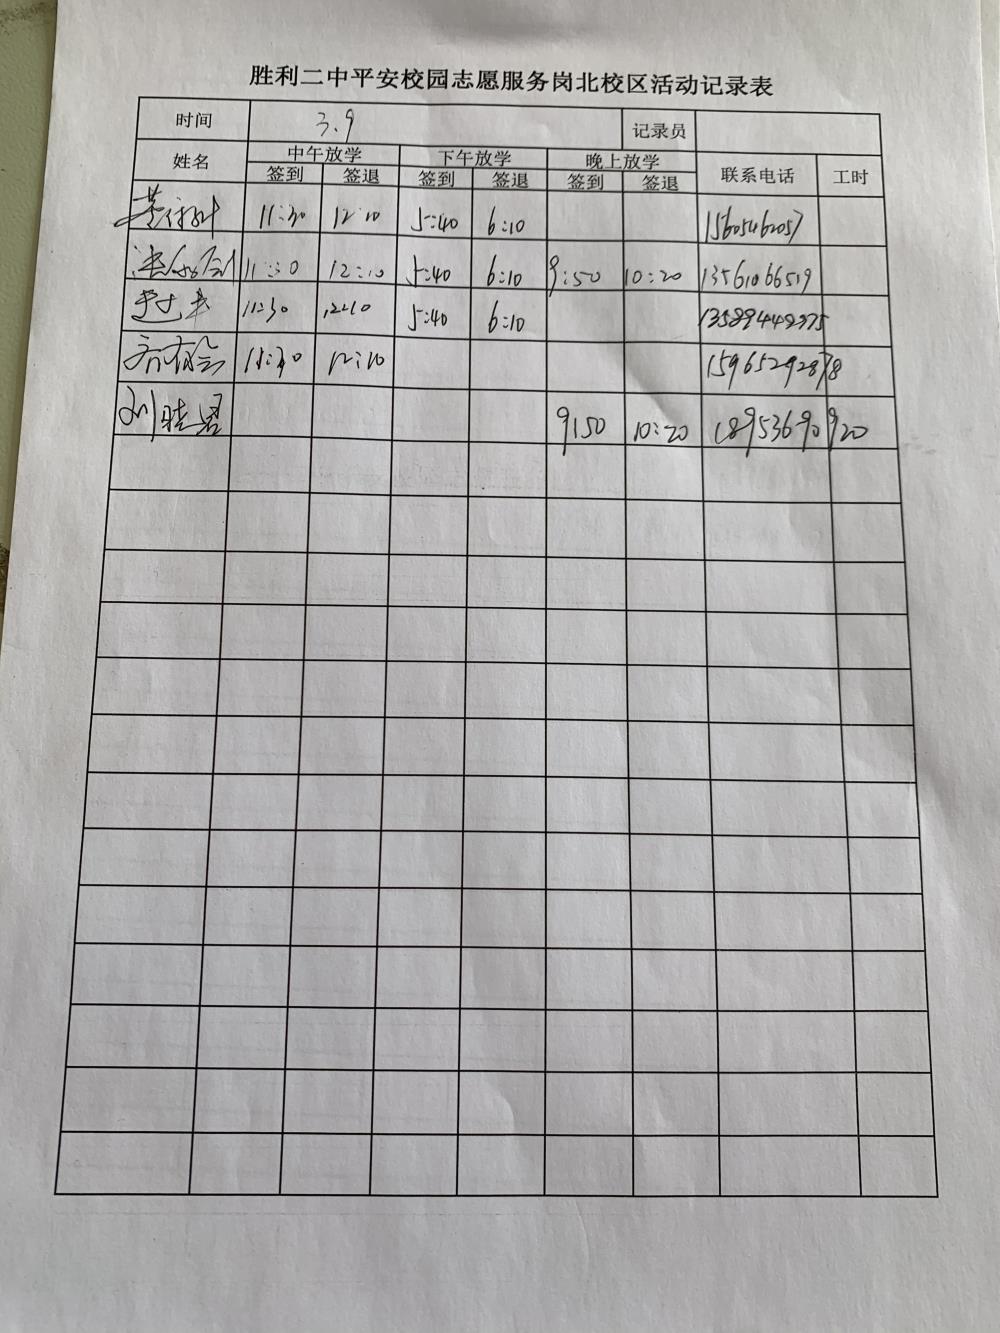 胜利二中平安校园志愿服务岗北校区活动记录表
时间 3.9 记录员
姓名 中午放学 下午放学 晚上放学 联系电话 工时
签到 签退 签到 签退 签到 签退
11:30 12:10 5:40 6:10 15605462057
11:30 12:10 5:40 6:10 9:50 10:20 13561066519
11:30 12:10 5:40 6:10 13589448375
11:30 12:10 15965292878
刘晓君 9:50 10:20 18953690920